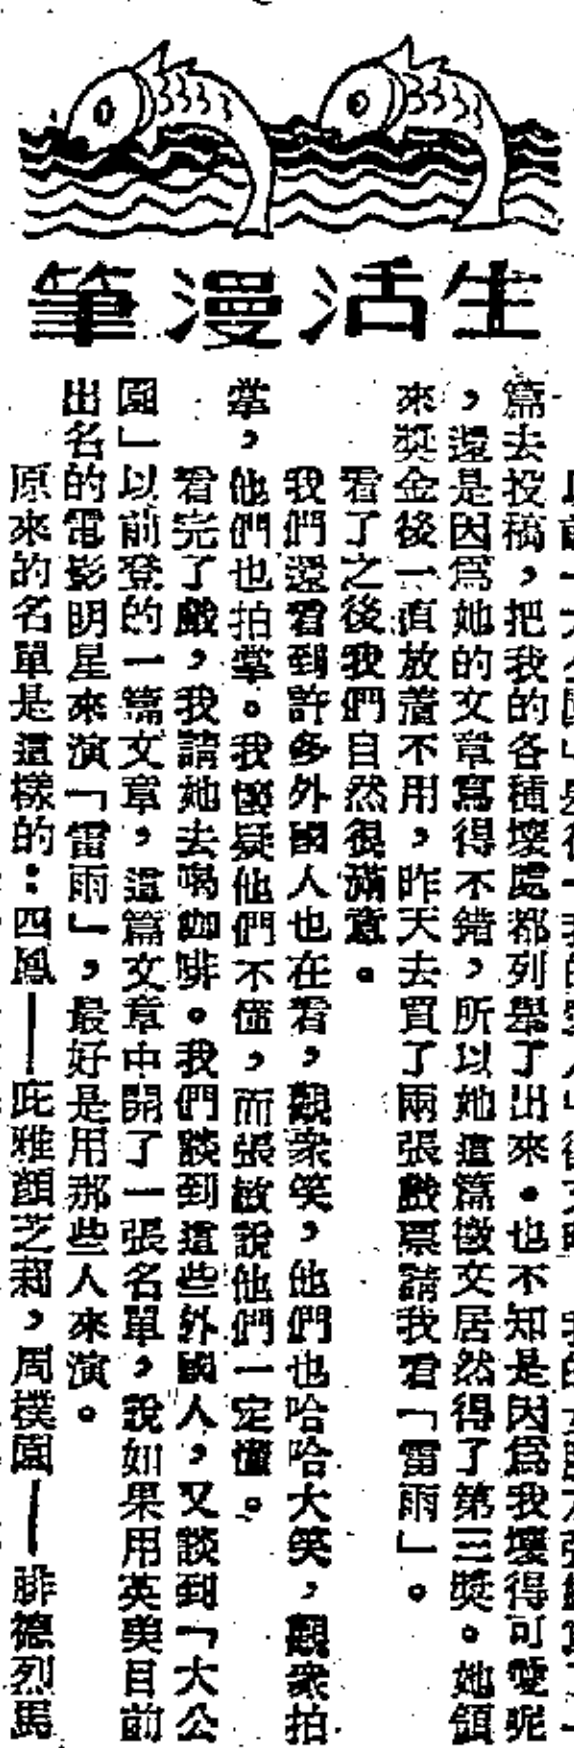 生活漫筆
篇去投稿，把我的各種壞處都列舉了出來。也不知是因爲我壞得可愛呢
，還是因爲她的文章寫得不錯，所以她這篇徵文居然得了第三獎。她領
來獎金後一直放着不用，昨天去買了兩張戲票請我看「雷雨」。
看了之後我們自然很滿意。
我們還看到許多外國人也在看，觀衆笑，他們也哈哈大笑，觀衆拍
掌，他們也拍掌。我懷疑他們不懂，而張敏說他們一定懂。
看完了戲，我請她去喝咖啡。我們談到這些外國人，又談到「大公
園」以前登的一篇文章，這篇文章中開了一張名單，說如果用英美目前
出名的電影明星來演「雷雨」，最好是用那些人來演。
原來的名單是這樣的：四鳳——庇雅顏芝莉，周樸園——腓德烈馬